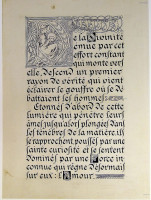 e la Divinité
émue par cet
effort constant
qui monte vers
elle, descend un premier
rayon de vérité qui vient
éclairer le gouffre où se dé
battaient les hommes
Étonnés d'abord de cette
lumière qui pénètre leurs
âmes jusqu'alors plongées dans
les ténèbres de la matière, ils
se rapprochent poussés par une
sainte curiosité et se sentent
dominés par une Force in
connue qui règne désormais
sur eux : l'Amour